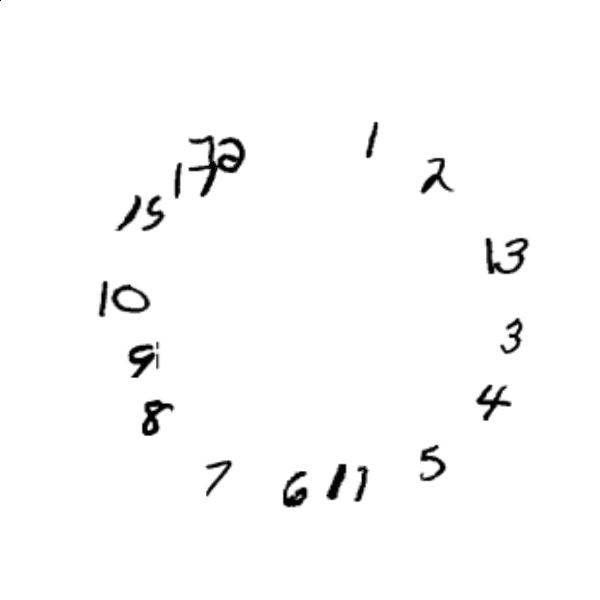 1
2
13
3
4
5
11
6
7
8
9
10
15
172